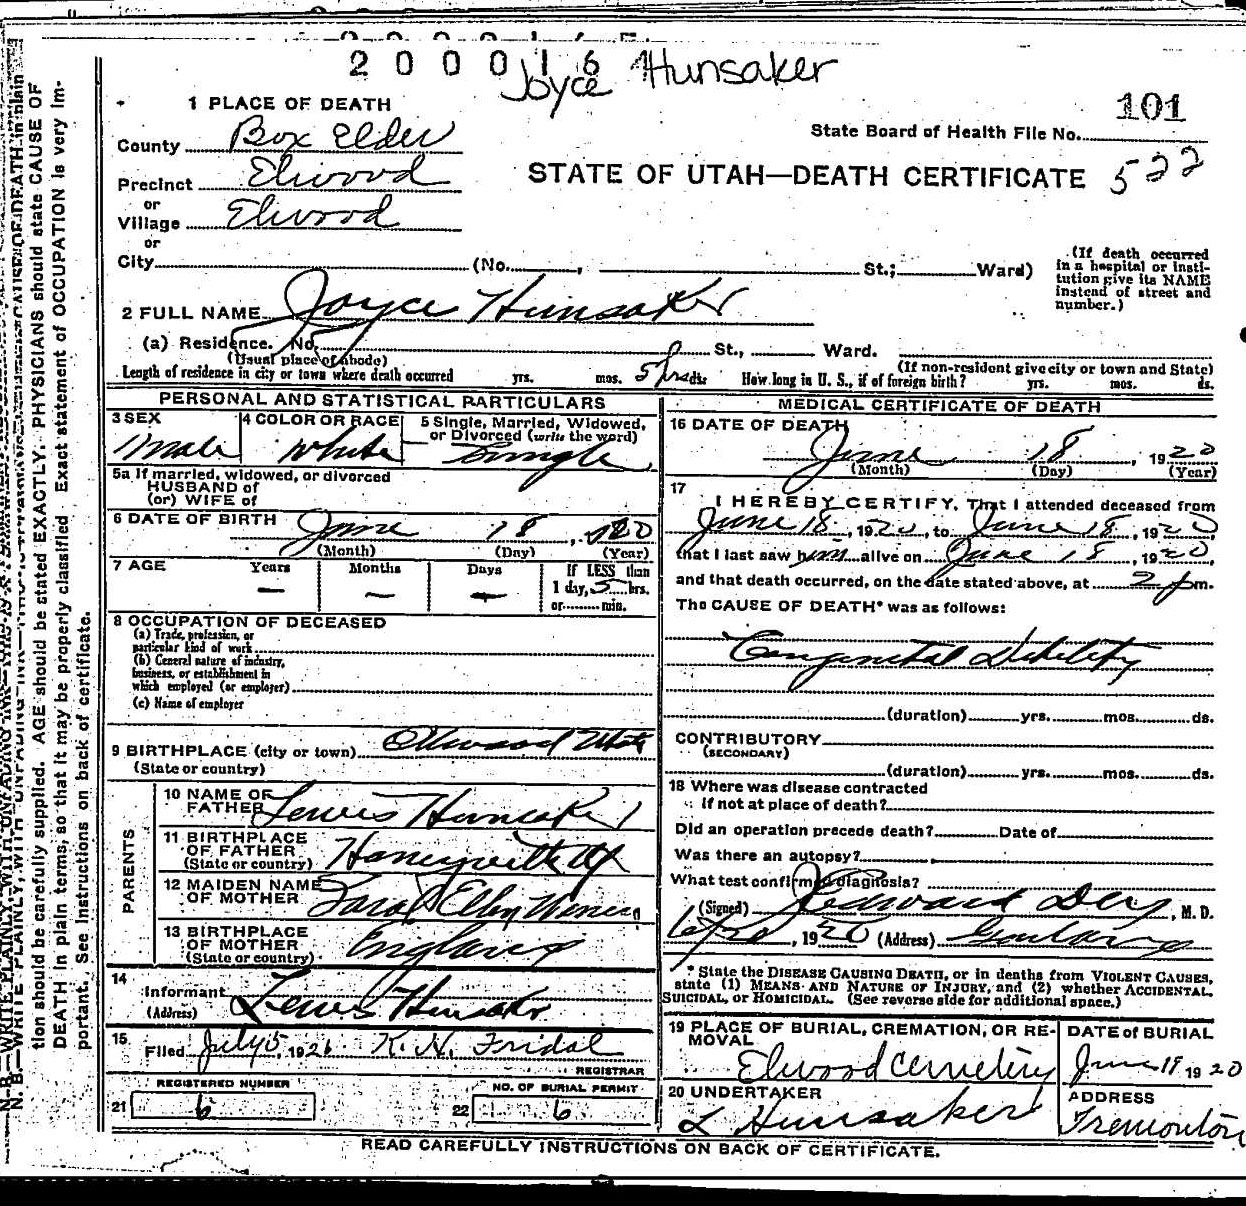 2 0 0 0 1 6 Joyce Hunsaker
101
1 PLACE OF DEATH
State Board of Health File No.
County Box Elder
STATE OF UTAH—DEATH CERTIFICATE 522
Precinct Elwood
or
Village Elwood
or
City (No. , St.; Ward)
(If death occurred in a hospital or institution give its NAME instead of street and number.)
2 FULL NAME Joyce Hunsaker
(a) Residence. No. St., Ward.
(Usual place of abode) (If non-resident give city or town and State)
Length of residence in city or town where death occurred yrs. mos. 5 hrs ds. How long in U. S., if of foreign birth? yrs. mos. ds.
PERSONAL AND STATISTICAL PARTICULARS
3 SEX
Male
4 COLOR OR RACE
White
5 Single, Married, Widowed, or Divorced (write the word)
Single
5a If married, widowed, or divorced
HUSBAND of
(or) WIFE of
6 DATE OF BIRTH June 18, 1920
(Month) (Day) (Year)
7 AGE Years Months Days If LESS than
— — — 1 day, 5 hrs.
or min.
8 OCCUPATION OF DECEASED
(a) Trade, profession, or
particular kind of work
(b) General nature of industry,
business, or establishment in
which employed (or employer)
(c) Name of employer
9 BIRTHPLACE (city or town) Elwood Utah
(State or country)
PARENTS
10 NAME OF
FATHER Lewis Hunsaker
11 BIRTHPLACE
OF FATHER
(State or country) Honeyville Ut
12 MAIDEN NAME
OF MOTHER Sarah
13 BIRTHPLACE
OF MOTHER
(State or country) England
14
Informant Lewis Hunsaker
(Address)
15
Filed July 5, 1920 K. N. Fridal
REGISTRAR
REGISTERED NUMBER
21 6
NO. OF BURIAL PERMIT
22 6
MEDICAL CERTIFICATE OF DEATH
16 DATE OF DEATH
June 18, 1920
(Month) (Day) (Year)
17
I HEREBY CERTIFY, That I attended deceased from
June 18, 1920, to June 18, 1920,
that I last saw him alive on June 18, 1920,
and that death occurred, on the date stated above, at 2 p m.
The CAUSE OF DEATH* was as follows:
Congenital Debility
(duration) yrs. mos. ds.
CONTRIBUTORY
(SECONDARY)
(duration) yrs. mos. ds.
18 Where was disease contracted
if not at place of death?
Did an operation precede death? Date of
Was there an autopsy?
What test confirmed diagnosis?
(Signed) , M. D.
, 1920 (Address) Garland
* State the DISEASE CAUSING DEATH, or in deaths from VIOLENT CAUSES,
state (1) MEANS AND NATURE OF INJURY, and (2) whether ACCIDENTAL,
SUICIDAL, or HOMICIDAL. (See reverse side for additional space.)
19 PLACE OF BURIAL, CREMATION, OR REMOVAL
Elwood Cemetery
DATE of BURIAL
June 19 1920
20 UNDERTAKER
L Hunsaker
ADDRESS
Tremonton
READ CAREFULLY INSTRUCTIONS ON BACK OF CERTIFICATE.
N. B.—WRITE PLAINLY, WITH UNFADING INK
tion should be carefully supplied. AGE should be stated EXACTLY. PHYSICIANS should state CAUSE OF
DEATH in plain terms, so that it may be properly classified. Exact statement of OCCUPATION is very im-
portant. See instructions on back of certificate.